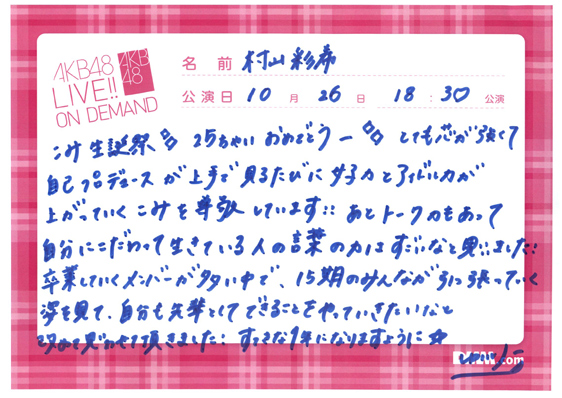 AKB48
LIVE!!
ON DEMAND
AKB
48
名 前 村山彩希
公演日 10 月 26 日 18 : 30 公演
こみ生誕祭 25ちゃい おめでとうー とても芯が強くて
自己プロデュースが上手で見るたびに女子力とアイドル力が
上がっていくこみを尊敬しています!! あとトーク力もあって
自分にこだわって生きている人の言葉の力はすごいなと思いました!!
卒業していくメンバーが多い中で、15期のみんなが引っ張っていく
姿を見て、自分も先輩としてできることをやっていきたいなと
改めて思わせて頂きました! すてきな1年になりますように☆
.com